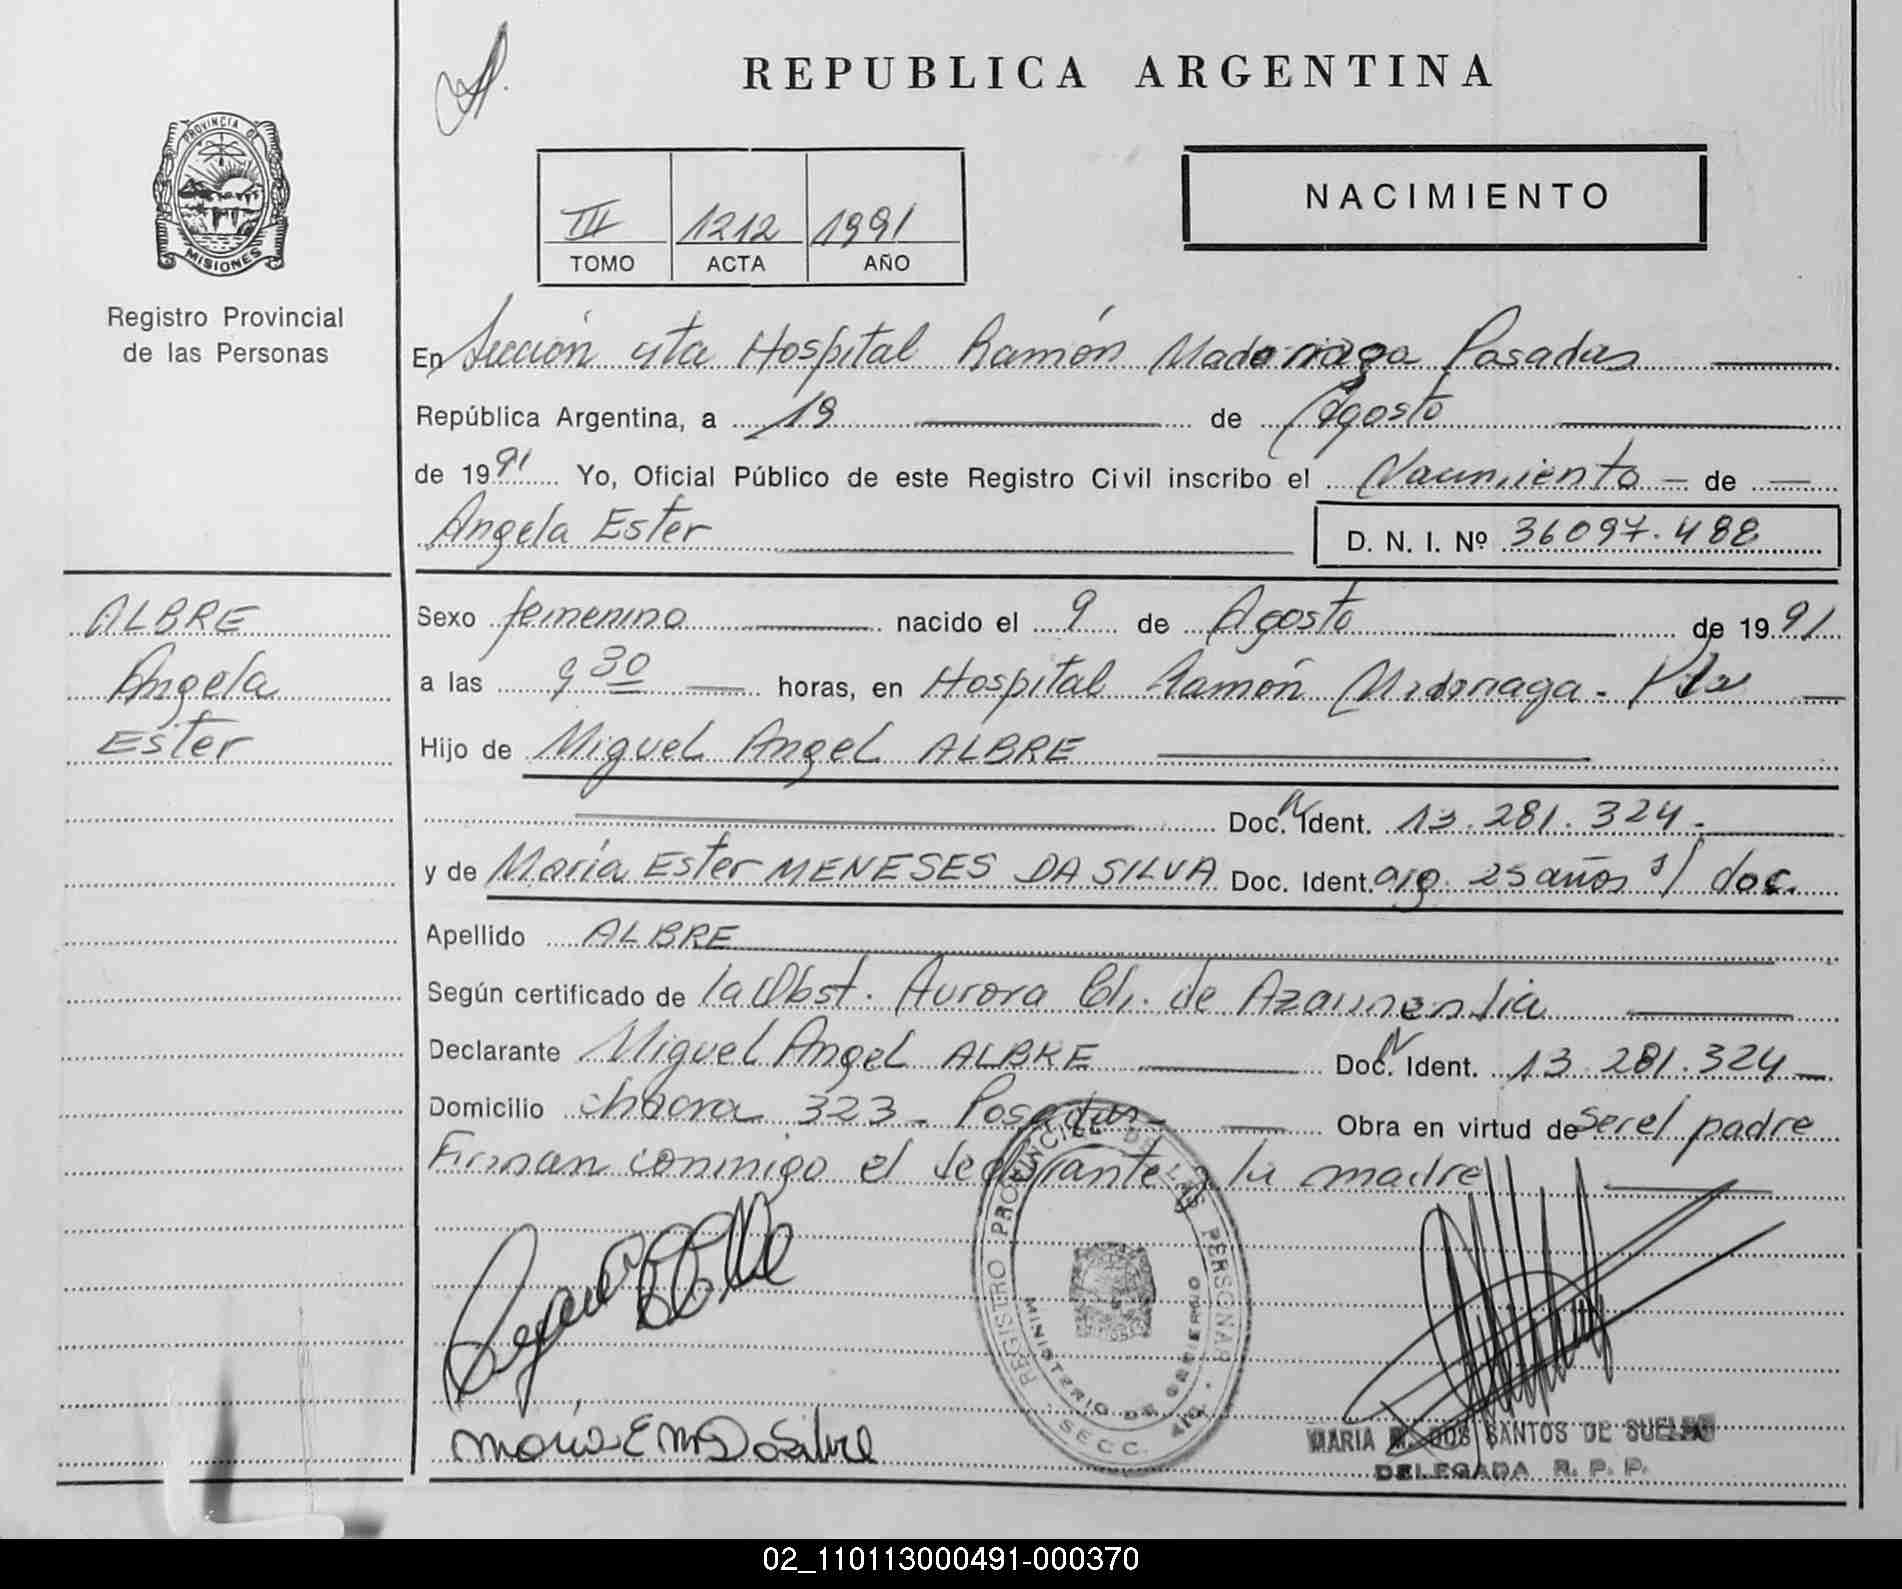 REPUBLICA ARGENTINA
PROVINCIA DE
MISIONES
Registro Provincial
de las Personas
III 1212 1991
TOMO ACTA AÑO
NACIMIENTO
En Sección 4ta Hospital Ramón Madariaga Posadas
República Argentina, a 19 de Agosto
de 1991 Yo, Oficial Público de este Registro Civil inscribo el Nacimiento de
Angela Ester D. N. I. Nº 36097.488
ALBRE
Angela
Ester
Sexo femenino nacido el 9 de Agosto de 1991
a las 9 30 horas, en Hospital Ramón Madariaga -
Hijo de Miguel Angel ALBRE
Doc. N Ident. 13.281.324.-
y de María Ester MENESES DA SILVA Doc. Ident. arg. 25 años s/ doc.
Apellido ALBRE
Según certificado de la Obst. Aurora Ch. de
Declarante Miguel Angel ALBRE Doc. N Ident. 13.281.324
Domicilio chacra 323 - Posadas Obra en virtud de ser el padre
Firman conmigo el declarante y la madre
REGISTRO PROVINCIAL DE LAS PERSONAS
MINISTERIO DE GOBIERNO
SECC. 4ta.
María E M Da Silva
MARIA M. DOS SANTOS DE
DELEGADA R. P. P.
02_110113000491-000370